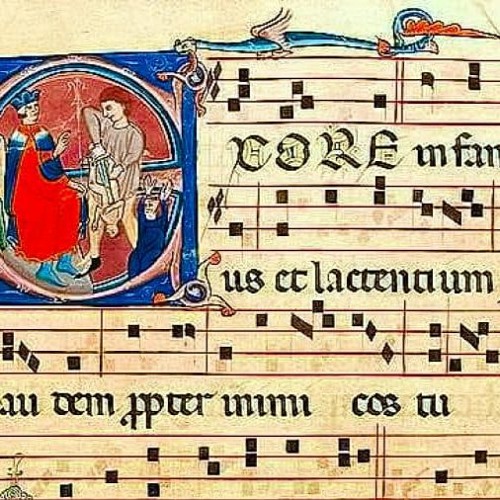 EXORE in fan
us et lactentium
au dem ppter inimi cos tu